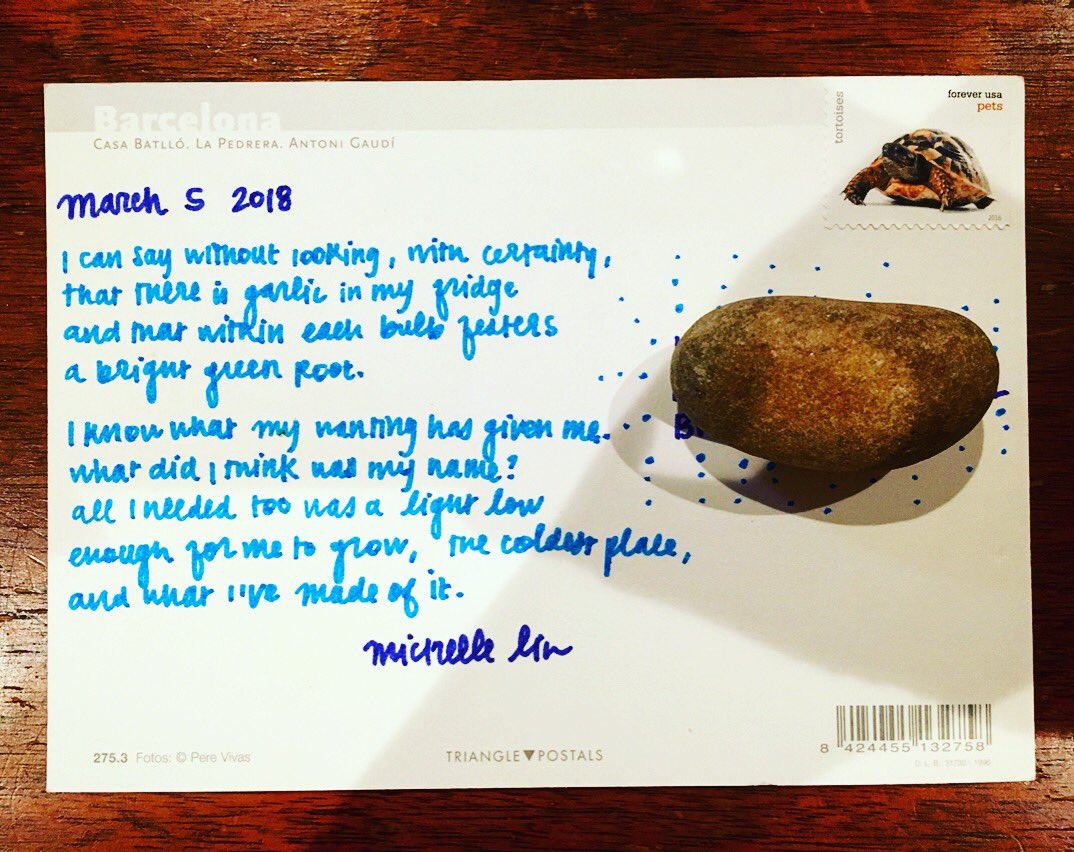 Barcelona
CASA BATLLÓ. LA PEDRERA. ANTONI GAUDÍ
tortoises
forever usa
pets
2016
march 5 2018
I can say without looking, with certainty,
that there is garlic in my fridge
and that within each bulb festers
a bright green root.
I know what my wanting has given me.
what did I think was my name?
all I needed too was a light low
enough for me to grow, the coldest place,
and what I've made of it.
michelle lin
B
275.3 Fotos: © Pere Vivas
TRIANGLE▼POSTALS
8 424455 132758
D. L. B.: 31792 - 1996